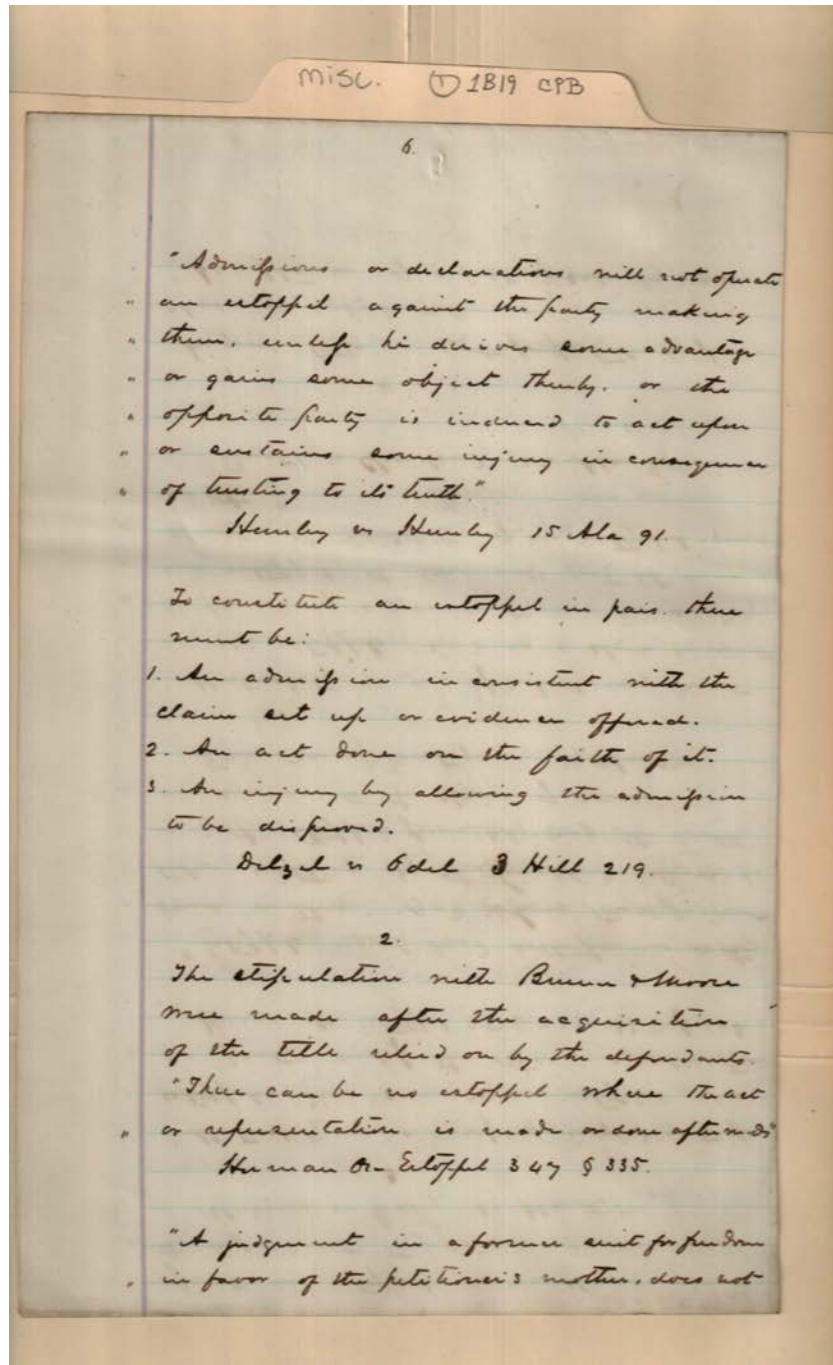 misc. ① 1B19 CPB
6.
"Admissions or declarations will not operate
" an estoppel against the party making
" them, unless he derives some advantage
" or gains some object thereby, or the
" opposite party is induced to act upon
" or sustains some injury in consequence
" of trusting to its truth."
vs 15 Ala 91.
To constitute an estoppel in pais. there
must be:
1. An admission inconsistent with the
claim set up or evidence offered.
2. An act done on the faith of it.
3. An injury by allowing the admission
to be disproved.
Delzel vs Odel 3 Hill 219.
2.
The stipulation with & Moore
were made after the acquisition
of the title relied on by the defendants.
"There can be no estoppel where the act
" or representation is made or done afterwds"
Herman On Estoppel 347 § 335.
"A judgment in a former suit for freedom
" in favor of the petitioner's mother, does not